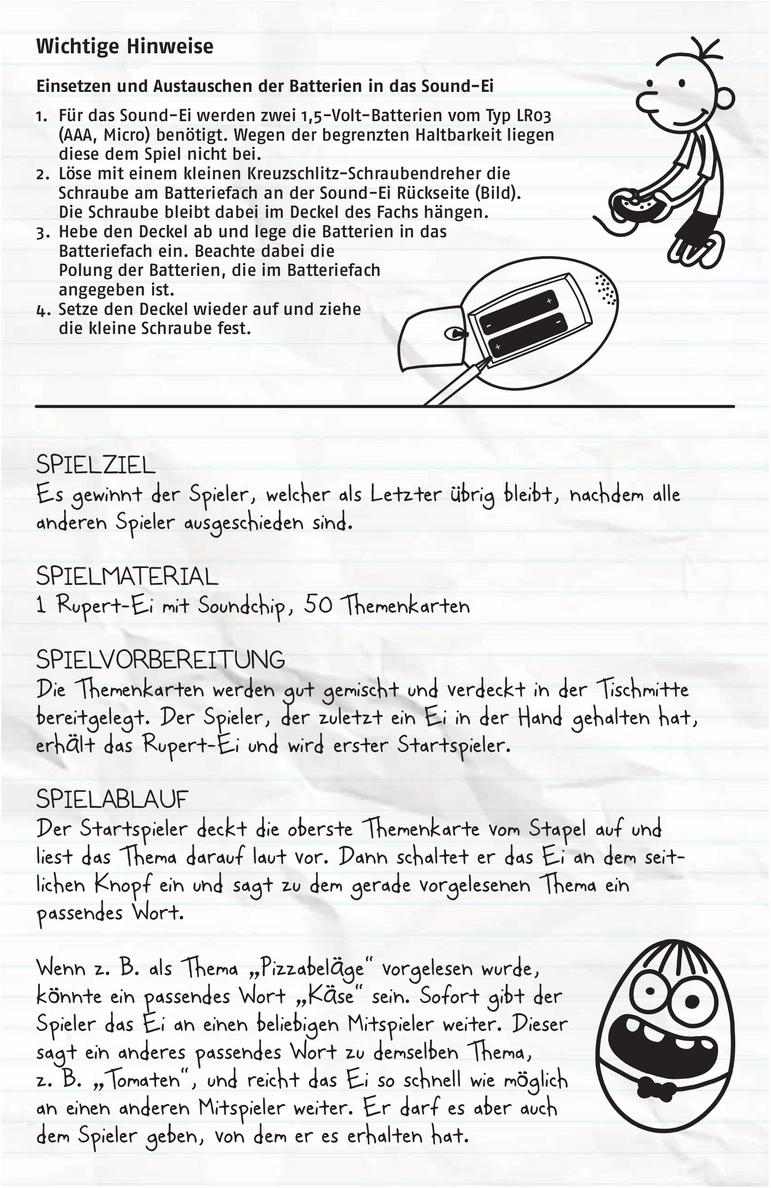 Wichtige Hinweise
Einsetzen und Austauschen der Batterien in das Sound-Ei
1. Für das Sound-Ei werden zwei 1,5-Volt-Batterien vom Typ LR03
(AAA, Micro) benötigt. Wegen der begrenzten Haltbarkeit liegen
diese dem Spiel nicht bei.
2. Löse mit einem kleinen Kreuzschlitz-Schraubendreher die
Schraube am Batteriefach an der Sound-Ei Rückseite (Bild).
Die Schraube bleibt dabei im Deckel des Fachs hängen.
3. Hebe den Deckel ab und lege die Batterien in das
Batteriefach ein. Beachte dabei die
Polung der Batterien, die im Batteriefach
angegeben ist.
4. Setze den Deckel wieder auf und ziehe
die kleine Schraube fest.
SPIELZIEL
Es gewinnt der Spieler, welcher als Letzter übrig bleibt, nachdem alle
anderen Spieler ausgeschieden sind.
SPIELMATERIAL
1 Rupert-Ei mit Soundchip, 50 Themenkarten
SPIELVORBEREITUNG
Die Themenkarten werden gut gemischt und verdeckt in der Tischmitte
bereitgelegt. Der Spieler, der zuletzt ein Ei in der Hand gehalten hat,
erhält das Rupert-Ei und wird erster Startspieler.
SPIELABLAUF
Der Startspieler deckt die oberste Themenkarte vom Stapel auf und
liest das Thema darauf laut vor. Dann schaltet er das Ei an dem seit-
lichen Knopf ein und sagt zu dem gerade vorgelesenen Thema ein
passendes Wort.
Wenn z. B. als Thema „Pizzabeläge“ vorgelesen wurde,
könnte ein passendes Wort „Käse“ sein. Sofort gibt der
Spieler das Ei an einen beliebigen Mitspieler weiter. Dieser
sagt ein anderes passendes Wort zu demselben Thema,
z. B. „Tomaten“, und reicht das Ei so schnell wie möglich
an einen anderen Mitspieler weiter. Er darf es aber auch
dem Spieler geben, von dem er es erhalten hat.